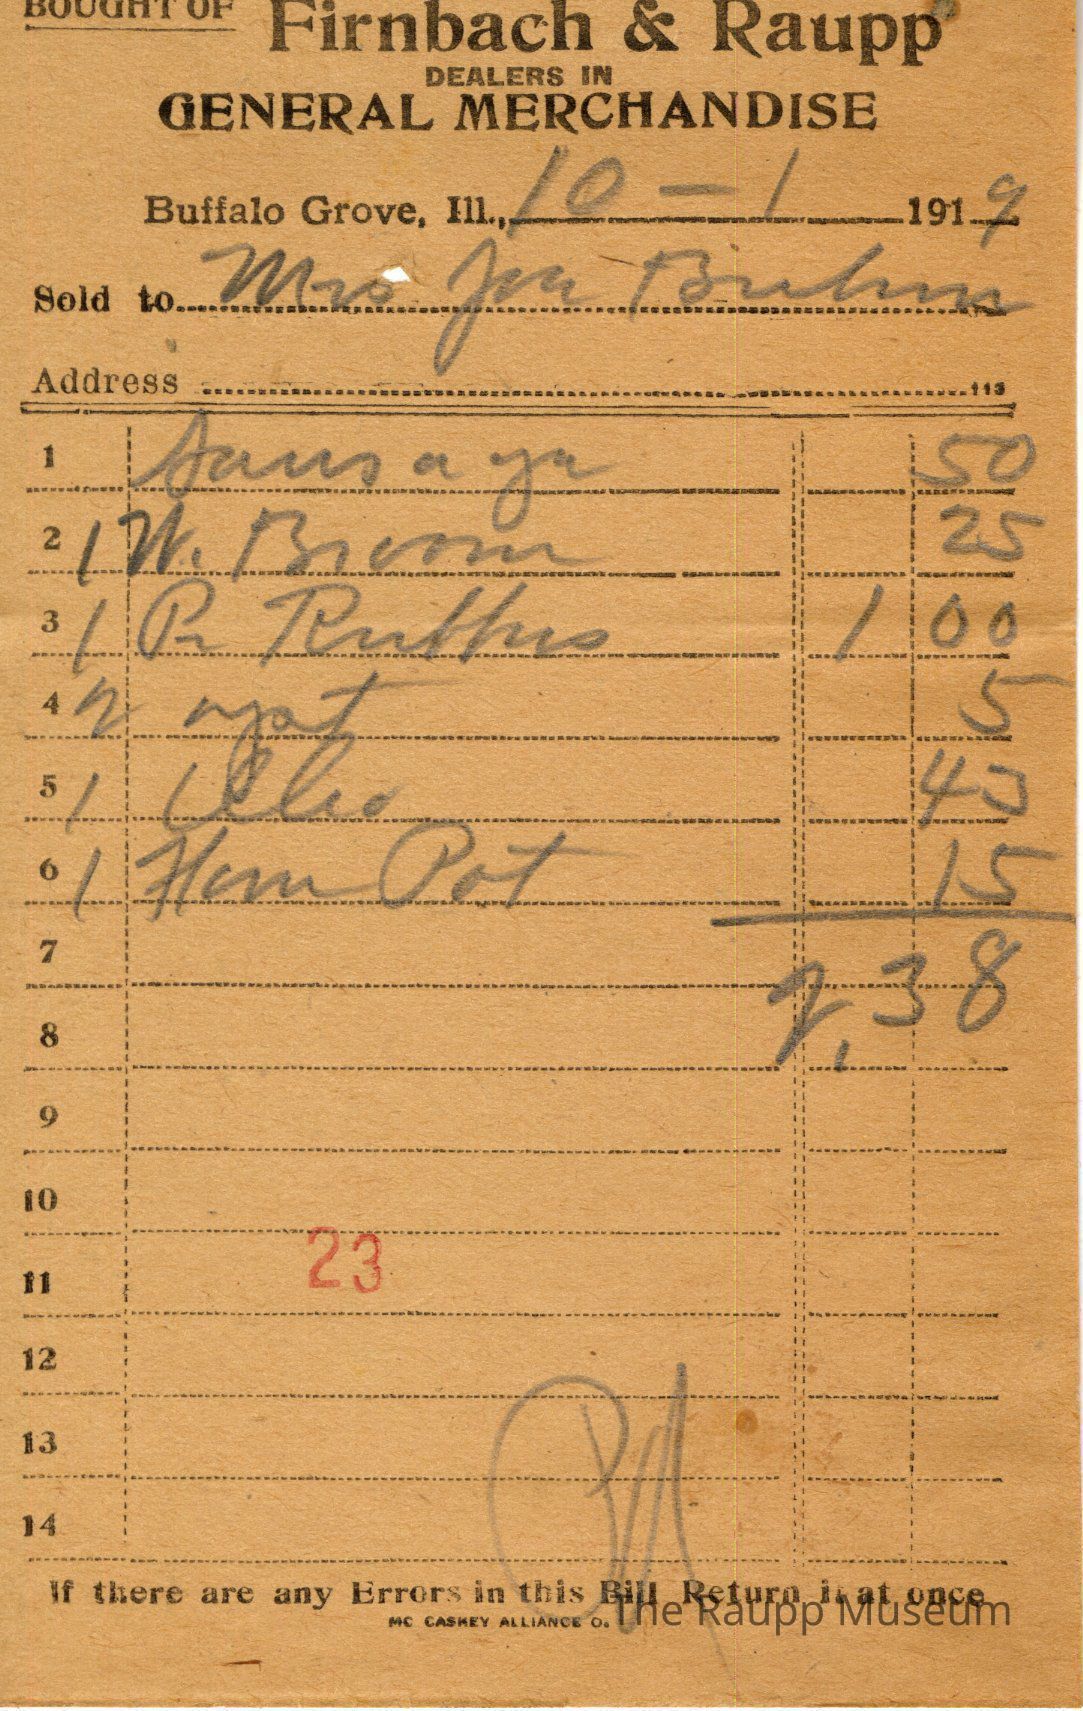 BOUGHT OF Firnbach & Raupp
DEALERS IN
GENERAL MERCHANDISE
Buffalo Grove, Ill., 10 - 1 1919
Sold to Mrs Joe
Address 113
1 Sausage 50
2 1 W. Broom 25
3 1 Pr Rubbers 1 00
4 2 5
5 1 43
6 1 Pot 15
7 2,38
8
9
10
11 23
12
13
14
If there are any Errors in this Bill Return it at once
MC CASKEY ALLIANCE O.
The Raupp Museum